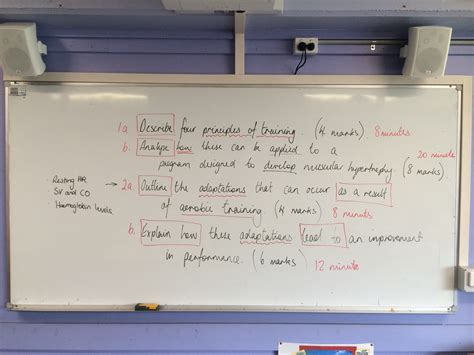 1a Describe four principles of training. (4 marks) 8 minutes
b. Analyse how these can be applied to a
program designed to develop muscular hypertrophy (8 marks). 20 minute
Resting HR
SV and CO
Haemoglobin levels
→ 2a Outline the adaptations that can occur as a result
of aerobic training (4 marks) 8 minutes
b. Explain how these adaptations lead to an improvement
in performance. (6 marks) 12 minutes